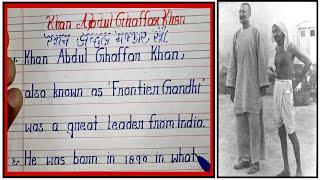 Khan Abdul Ghaffar Khan
खान अब्दुल गफ्फार खाँ
1. Khan Abdul Ghaffar Khan,
also known as 'Frontier Gandhi'
was a great leader from India.
2. He was born in 1890 in what